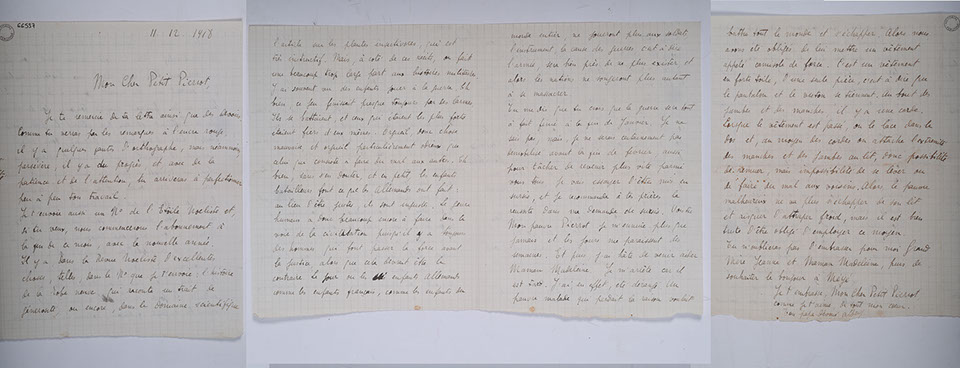 66557
11. 12. 1918
Mon Cher Petit Pierrot,
Je te remercie de ta lettre ainsi que des devoirs.
Comme tu verras par les remarques à l'encre rouge,
il y a quelques fautes d'orthographe, mais néanmoins
persévère, il y a du progrès et avec de la
patience et de l'attention, tu arriveras à perfectionner
peu à peu ton travail.
Je t'envoie aussi un N° de l'Etoile Noëliste et,
si tu veux, nous commencerons l'abonnement à
la fin de ce mois, avec la nouvelle année.
Il y a dans la Revue Noëliste d'excellentes
choses, telles dans le N° que je t'envoie; l'histoire
de la robe noire, qui raconte un trait de
générosité; ou encore, dans le domaine scientifique
l'article sur les plantes insectivores, qui est
très instructif. Mais, à côté de ces récits, on fait
une beaucoup trop large part aux histoires militaires.
J'ai souvent vu des enfants jouer à la guerre. Eh
bien ce jeu finissait presque toujours par des larmes.
Ils se battaient et ceux qui étaient les plus forts
étaient fiers d'eux-mêmes. Orgueil, donc chose
mauvaise et orgueil particulièrement odieux que
celui qui consiste à faire du mal aux autres. Eh
bien, sans s'en douter, et en petit, les enfants
font ce que les Allemands ont fait:
au lieu d'être justes, ils sont injustes. Le genre
humain a donc beaucoup encore à faire dans la
voie de la civilisation puisqu'il y a toujours
des hommes qui font passer la force avant
la justice alors que cela devrait être le
contraire. Le jour où les enfants allemands
comme les enfants français, comme les enfants du
monde entier, ne joueront plus aux soldats,
l'entraînement, la cause des guerres c'est à dire
l'armée, sera bien près de ne plus exister et
alors les nations ne songeront plus autant
à se massacrer.
Tu me dis que tu crois que la guerre sera tout
à fait finie à la fin de Janvier. Je ne
sais pas, mais je ne serai certainement pas
démobilisé avant la fin de février aussi
pour tâcher de revenir plus vite parmi
vous tous, je vais essayer d'être mis en
sursis, et je recommande à tes prières la
réussite dans ma demande de sursis. Vois-tu
Mon pauvre Pierrot je m'ennuie plus que
jamais et les jours me paraissent des
semaines. Et puis j'ai hâte de revoir aussi
Maman Madeleine. Je m'arrête car il
est tard. J'ai en effet, été dérangé. Un
pauvre malade qui perdait la raison voulait
battre tout le monde et s'échapper. Alors nous
avons été obligés de lui mettre un vêtement
appelé camisole de force. C'est un vêtement
en forte toile, d'une seule pièce, c'est à dire que
le pantalon et le veston se tiennent. Au bout des
jambes et des manches il y a une corde.
Lorsque le vêtement est passé, on le lace dans le
dos et, au moyen des cordes on attache l'extrémité
des manches et des jambes au lit, donc possibilité
de remuer, mais impossibilité de se lever ou
de faire du mal aux voisins. Alors le pauvre
malheureux ne peut plus s'échapper de son lit
et risquer d'attraper froid, mais il est bien
triste d'être obligé d'employer ce moyen.
Tu n'oublieras pas d'embrasser pour moi grand
Mère Jeanne et Maman Madeleine, puis de
souhaiter le bonjour à
Je t'embrasse, Mon Cher Petit Pierrot
comme je t'aime, de tout mon coeur.
Ton papa